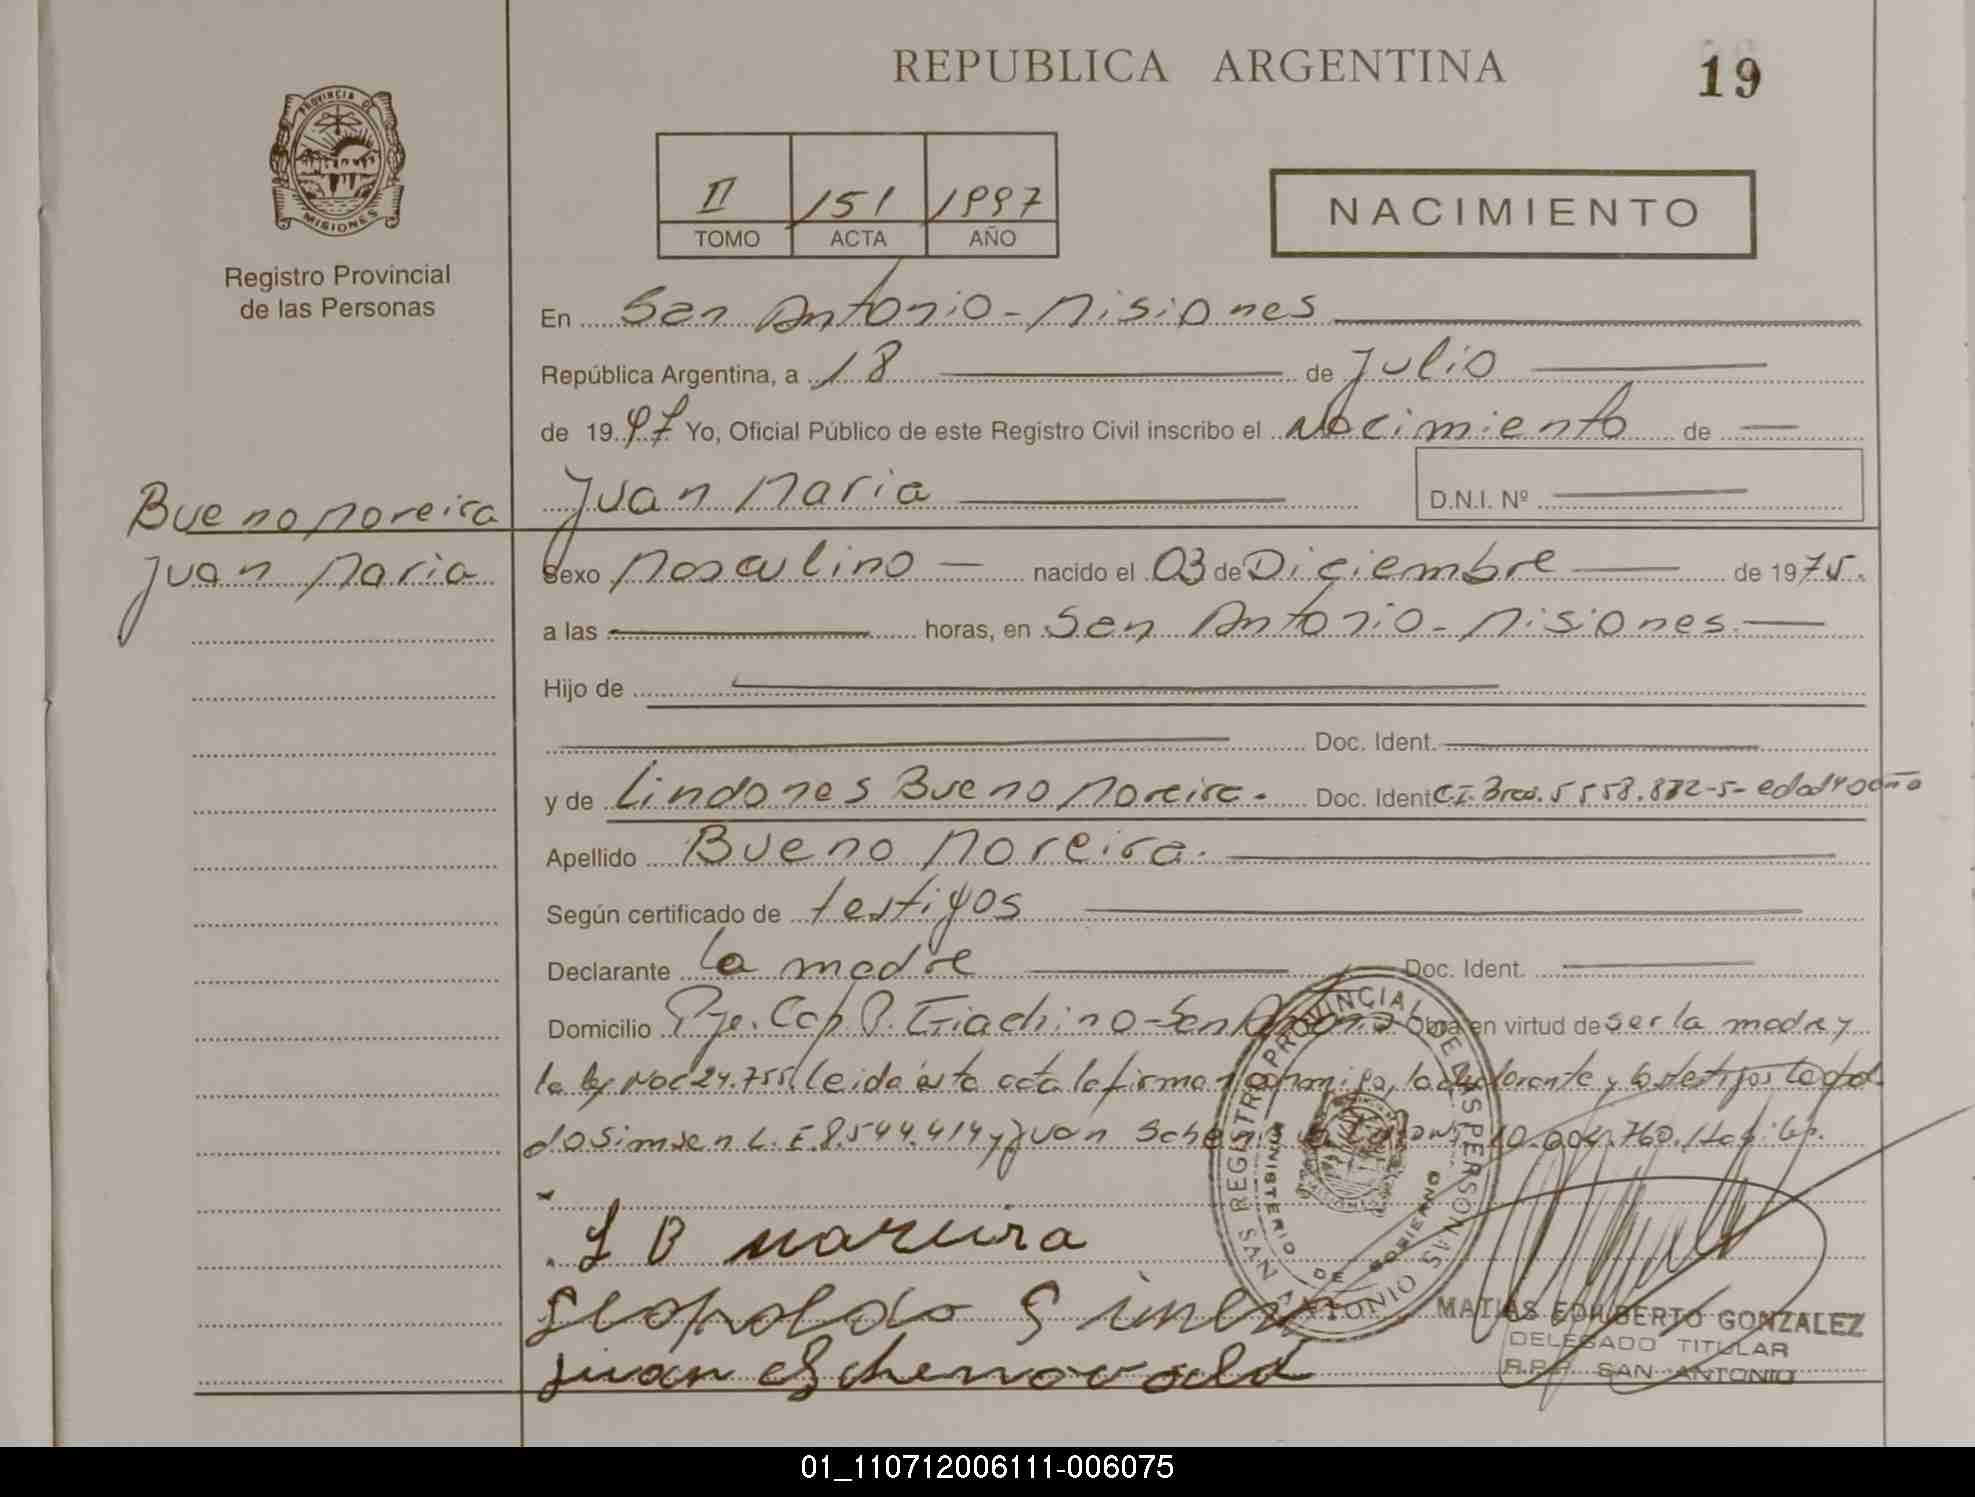 REPUBLICA ARGENTINA
19
PROVINCIA DE
MISIONES
Registro Provincial
de las Personas
II 151 1997
TOMO ACTA AÑO
NACIMIENTO
En San Antonio - Misiones
República Argentina, a 18 de Julio
de 1997 Yo, Oficial Público de este Registro Civil inscribo el Nacimiento de
Juan Maria D.N.I. Nº
Bueno Moreira
Juan Maria
Sexo Masculino nacido el 03 de Diciembre de 1975.
a las horas, en San Antonio - Misiones.
Hijo de
Doc. Ident.
y de Lindones Bueno Moreira. Doc. Ident C.I. Bras. 5558.872-5- edad
Apellido Bueno Moreira.
Según certificado de testigos
Declarante La madre Doc. Ident.
Domicilio Pje. Cap P. Giachino - San Antonio Obra en virtud de ser la madre y
la ley Nac 24.755. Leida esta acta la firman conmigo, la declarante y los testigos
L.E. 8.544.414 y Juan 10.004.760.
L B Mareira
Leopoldo
Juan
REGISTRO PROVINCIAL DE LAS PERSONAS
MINISTERIO DE GOBIERNO
SAN ANTONIO
MATIAS EDILBERTO GONZALEZ
DELEGADO TITULAR
R.P.P. SAN ANTONIO
01_110712006111-006075